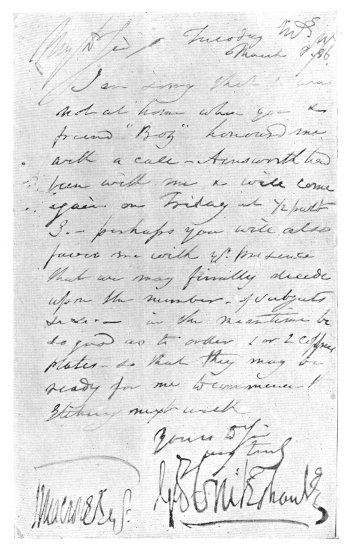 My Dr Sir Tuesday
March 8/36
I am sorry that I was
not at home when you &
friend "Boz" honoured me
with a call - Ainsworth had
been with me & will come
again on Friday at 1/2 past
3. - perhaps you will also
favor me with yr presence
that we may finally decide
upon the number of subjects
&c &c - in the meantime be
so good as to order 1 or 2 copper
plates - so that they may be
ready for me to commence
Etching next week
Yours Dr Sir
very truly
Geo Cruikshank
Macrone Esqr.